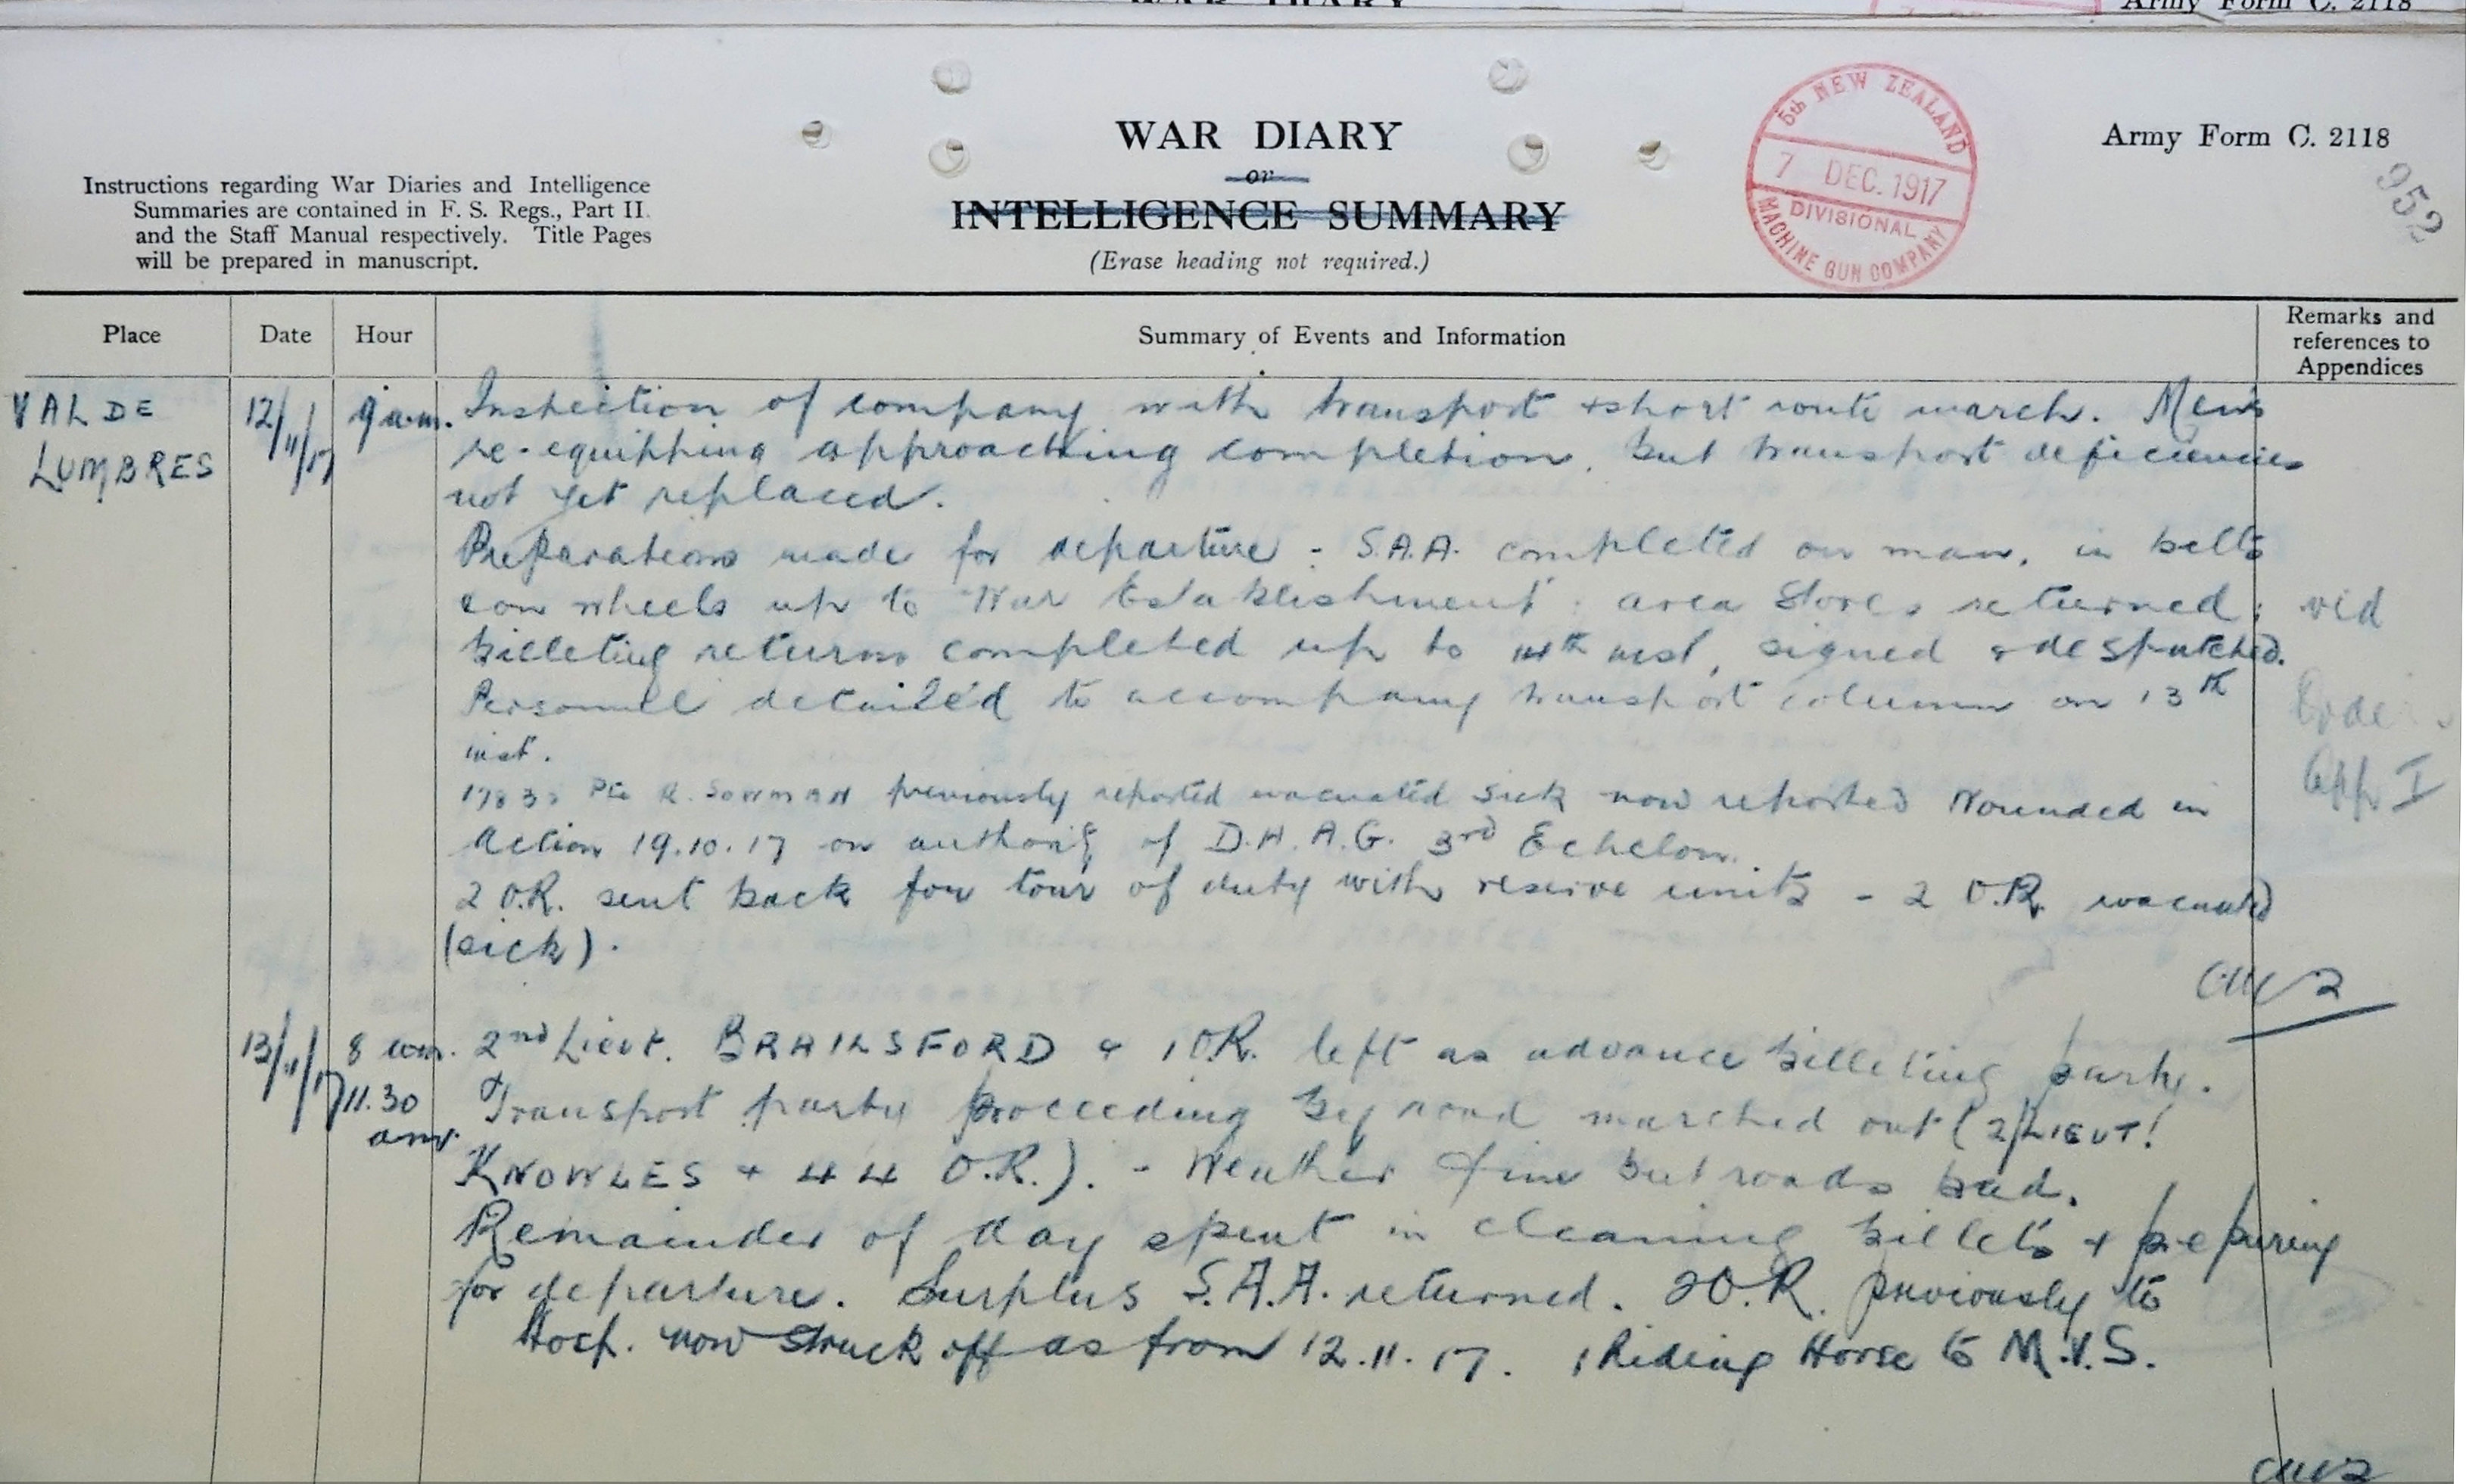 Army Form C. 2118
WAR DIARY
or
INTELLIGENCE SUMMARY
(Erase heading not required.)
Instructions regarding War Diaries and Intelligence
Summaries are contained in F. S. Regs., Part II.
and the Staff Manual respectively. Title Pages
will be prepared in manuscript.
5th NEW ZEALAND
7 DEC. 1917
DIVISIONAL
MACHINE GUN COMPANY
Army Form C. 2118
952
Place Date Hour Summary of Events and Information Remarks and
references to
Appendices
VAL DE 12/11/17 9 a.m. Inspection of company with transport & short route march. Men's
LUMBRES re-equipping approaching completion, but transport deficiencies
not yet replaced.
Preparations made for departure - S.A.A. completed on man, in belts
& on wheels up to War Establishment; area stores returned; vid
billeting returns completed up to 14th inst, signed & despatched.
Personnel detailed to accompany transport column on 13th
inst.
Orders
App I
Pte R. SOWMAN previously reported evacuated sick now reported Wounded in
Action 19.10.17 on authority of D.A.A.G. 3rd Echelon.
2 O.R. sent back for tour of duty with reserve units - 2 O.R. evacuated
(sick).
13/11/17 8 am. 2nd Lieut. BRAILSFORD & 1 O.R. left as advance billeting party.
11.30 am. Transport party proceeding by road marched out (2/LIEUT.
KNOWLES + 44 O.R.). - Weather fine but roads bad.
Remainder of day spent in cleaning billets & preparing
for departure. Surplus S.A.A. returned. 2 O.R. previously to
Hosp. now struck off as from 12.11.17. 1 Riding Horse to M.V.S.